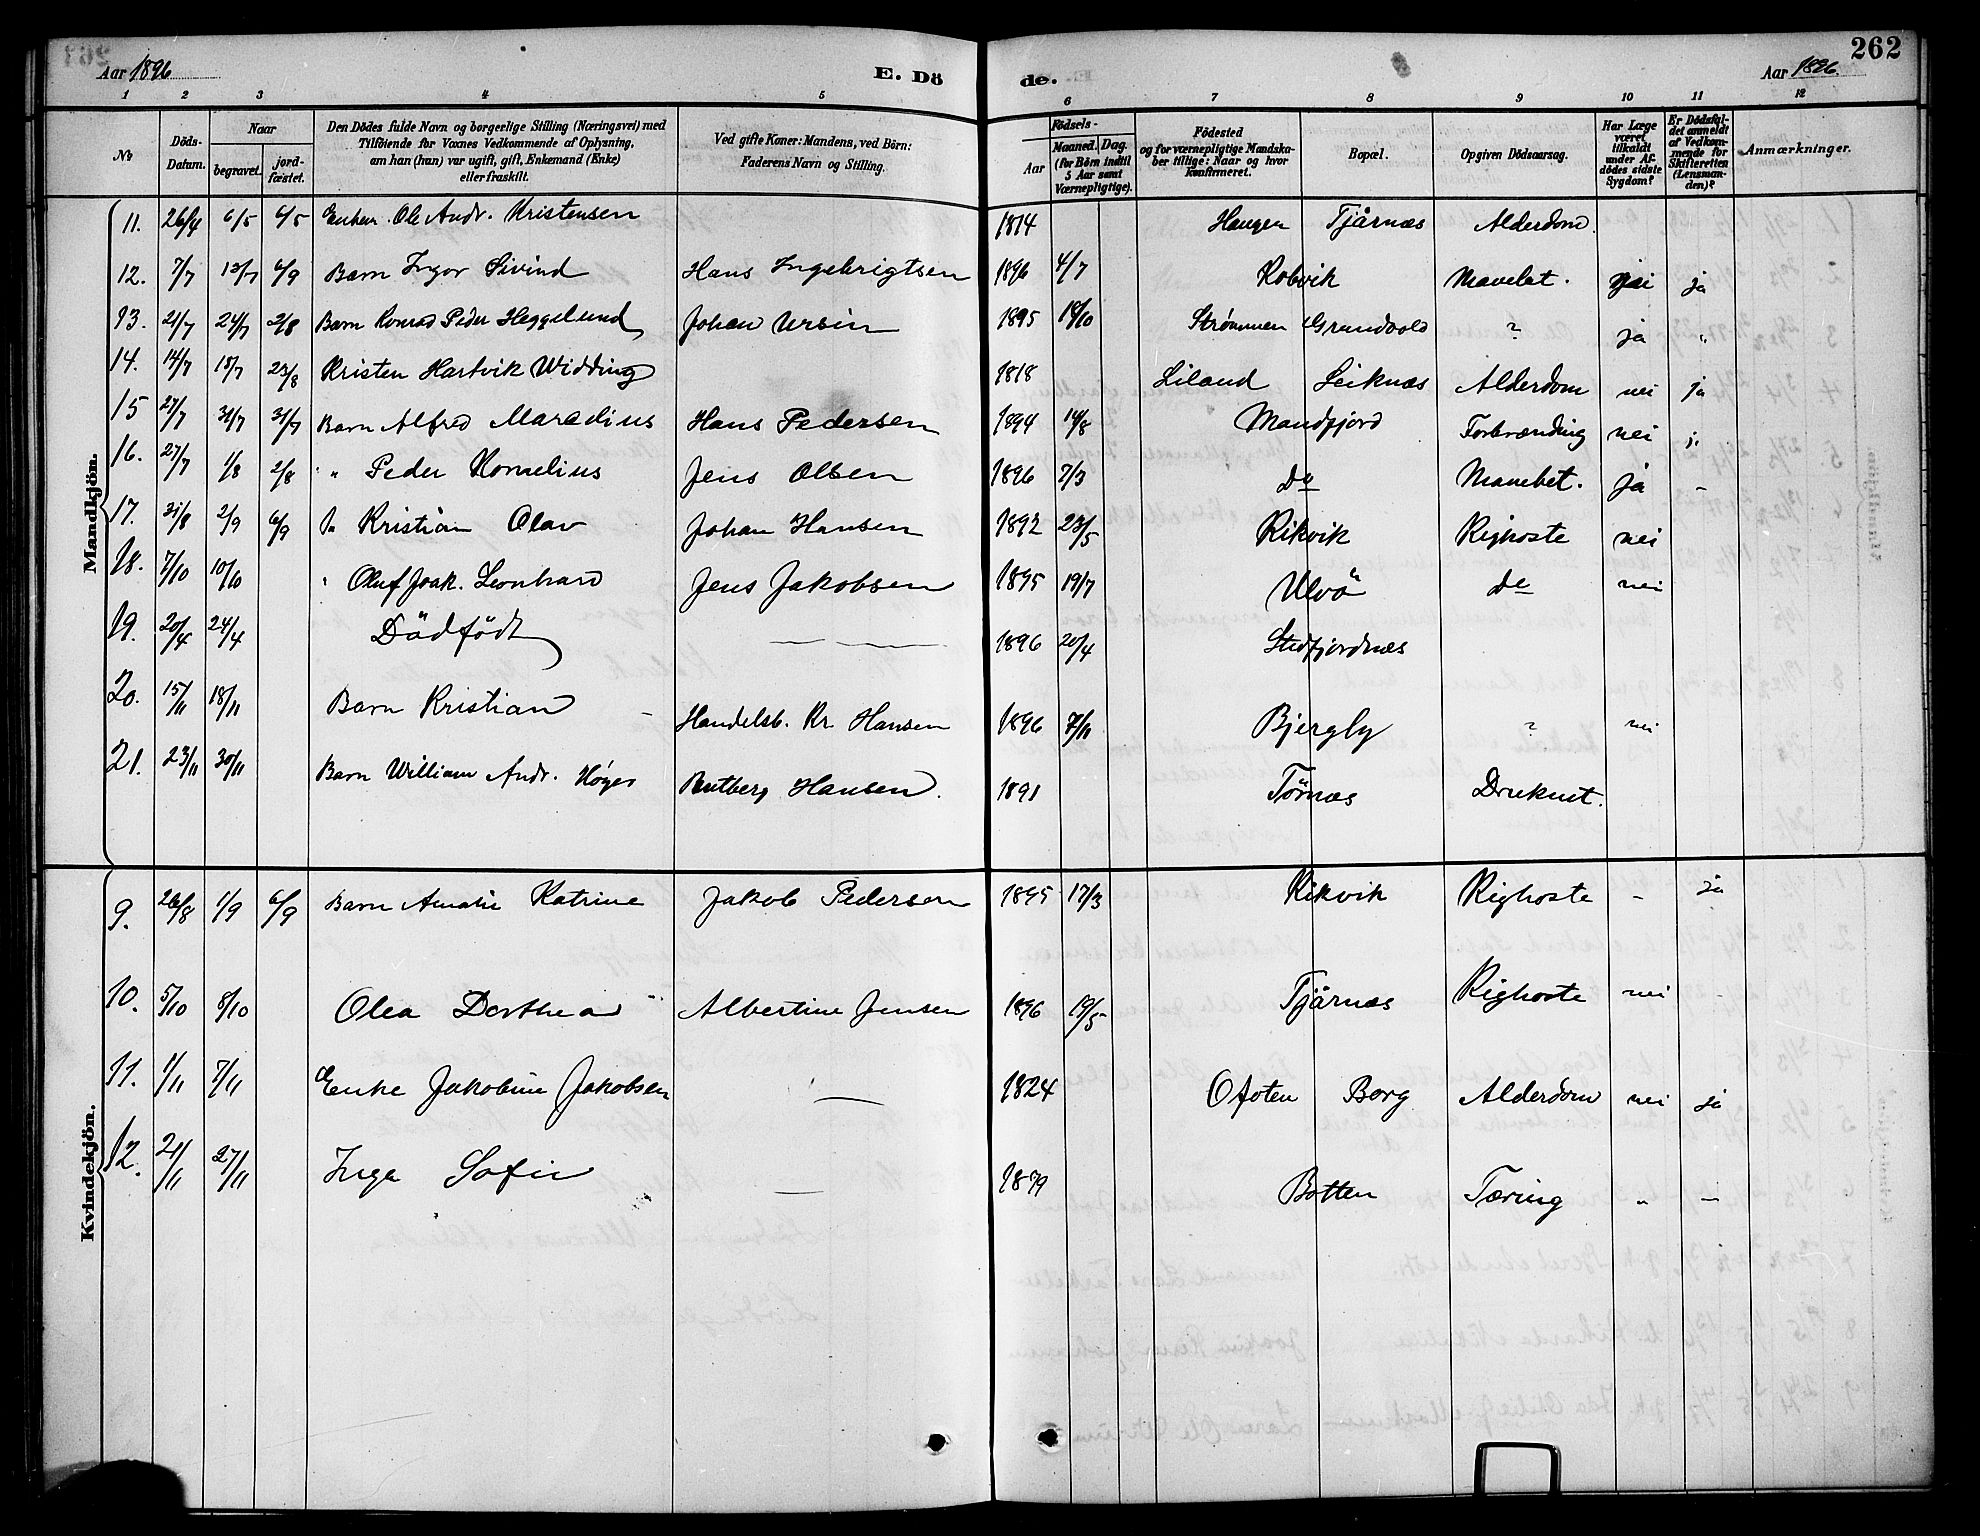 Aar 1896
E. Dö
de.
Aar 1896.
262
1 2 3 4 5 6 7 8 9 10 11 12
No
Döds-Datum.
Naar
begravet.
jord-fæstet.
Den Dödes fulde Navn og borgerlige Stilling (Næringsvei) med
Tilföiende for Voxnes Vedkommende af Oplysning,
om han (hun) var ugift, gift, Enkemand (Enke)
eller fraskilt.
Ved gifte Koner: Mandens, ved Börn:
Faderens Navn og Stilling.
Födsels-
Aar
Maaned. Dag.
(for Börn indtil
5 Aar samt
Værnepligtige).
Födested
og for værnepligtige Mandska-
ber tillige: Naar og hvor
konfirmeret.
Bopæl.
Opgiven Dödsaarsag.
Har Læge
været
tilkaldt
under Af-
dödes sidste
Sygdom?
Er Dödsfal-
det anmeldt
af Vedkom-
mende for
Skifteretten
(Lensman-
den)?
Anmærkninger.
Mandkjön.
11. 26/4 6/5 6/5 Enkem. Ole Andr. Kristensen 1814 Haugen Tjårnæs Alderdom.
12. 7/7 12/7 6/9 Barn Ingor Eivind Hans Ingebrigtsen 1896 4/7 Robvik Mavebet. nei ja
13. 21/7 24/7 2/8 Barn Konrad Peder Heggelund Johan Ursin 1895 18/10 Strømmen Grundvold ? ja "
14. 14/7 18/7 23/8 Kristen Hartvik Widding 1818 Liland Leiknæs Alderdom nei ja
15 27/7 31/7 31/7 Barn Alfred Maradius Hans Pedersen 1894 14/8 Mandfjord Forbrænding nei j.
16. 27/7 1/8 2/8 " Peder Kornelius Jens Olsen 1896 7/3 Do Mavebet. ja -
17. 31/8 2/9 6/9 Kristian Olav Johan Hansen 1892 23/5 Kikvik Kighoste nei
18. 7/10 10/10 " Oluf Joak. Leonhard Jens Jakobsen 1895 19/7 Ulvö Do nei
19. 20/4 24/4 Dödfödt — 1896 20/4 Stedfjordnæs
20. 15/11 18/11 Barn Kristian - Handelsb. Kr. Hansen 1896 7/11 Bjergly ? nei
21. 23/11 30/11 Barn William Andr. Høyer Rutberg Hansen. 1891 Törnæs Druknet.
Kvindekjön.
9. 26/8 1/9 6/9 Barn Amalie Katrine Jakob Pedersen 1895 17/3 Kikvik Kighoste - ja
10. 5/10 8/10 Olea Dorthea Albertine Jensen 1896 19/5 Tjårnæs Kighoste nei
11. 1/11 7/11 Enke Jakobine Jakobsen — 1824 Ofoten Borg Alderdom nei ja
12. 21/11 27/11 Inga Sofie — 1879 Botten Tæring " —